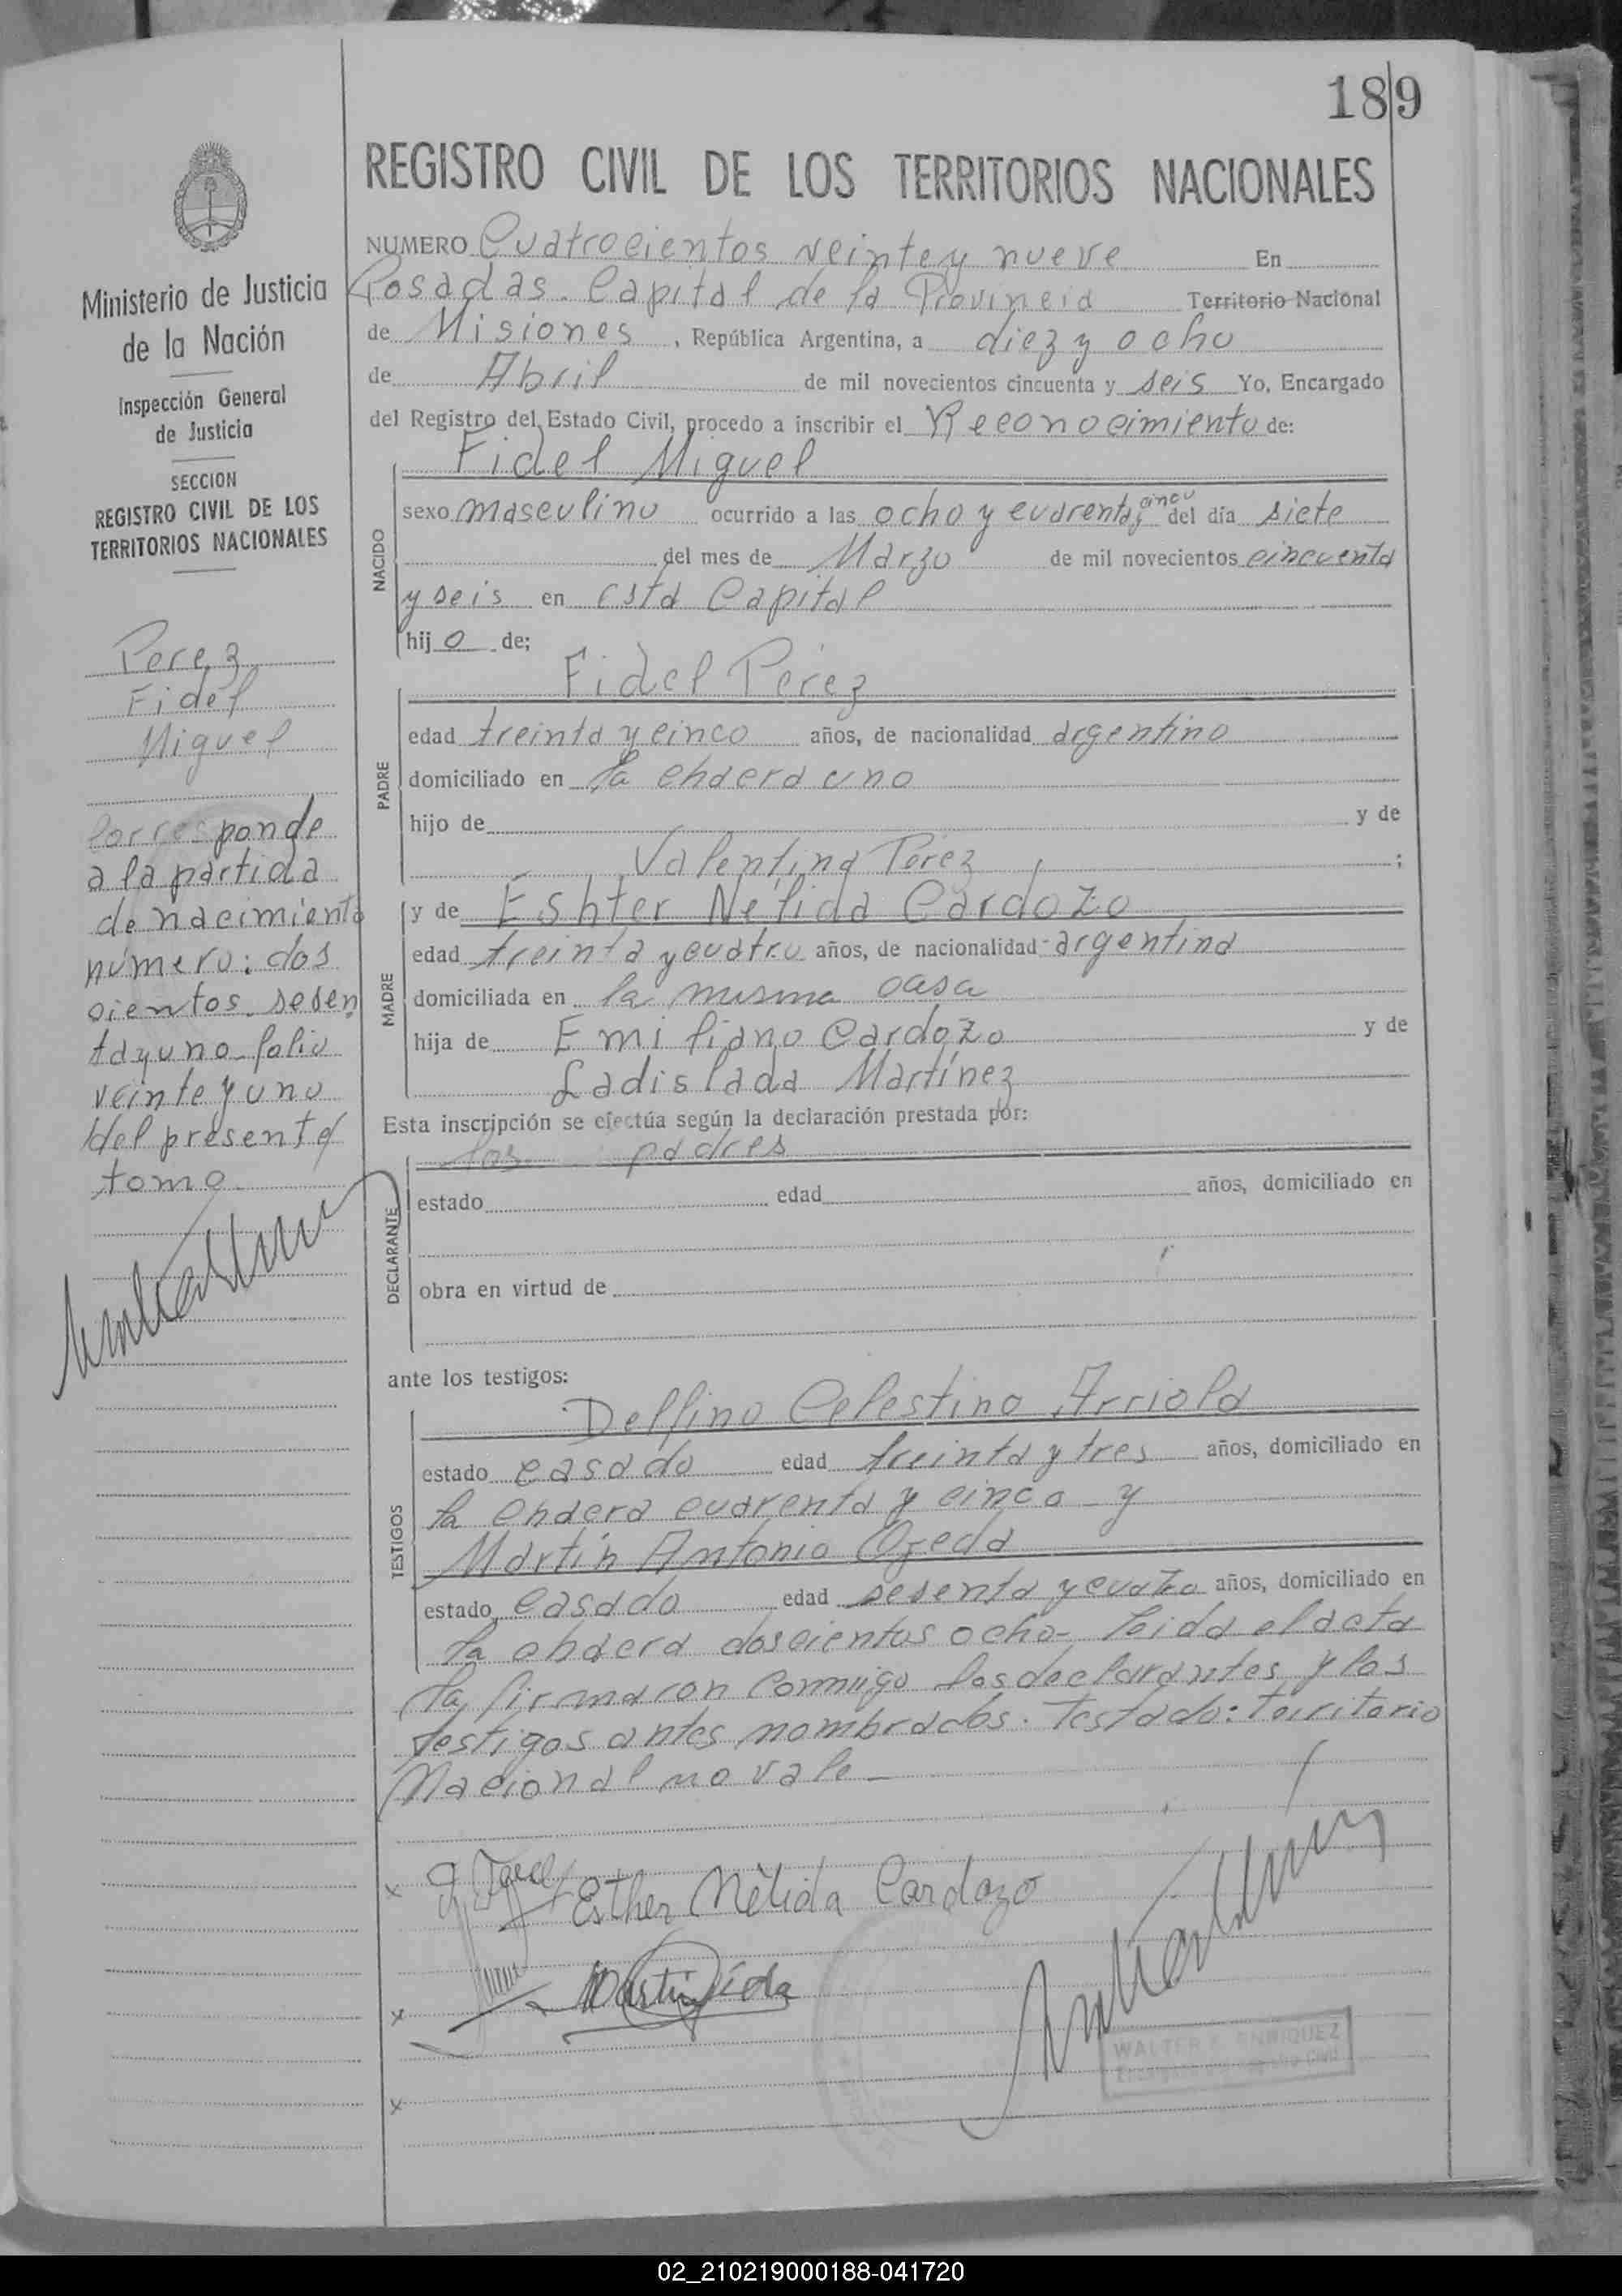 189
REGISTRO CIVIL DE LOS TERRITORIOS NACIONALES
Ministerio de Justicia
de la Nación
Inspección General
de Justicia
SECCION
REGISTRO CIVIL DE LOS
TERRITORIOS NACIONALES
Perez
Fidel
Miguel
Corresponde
a la partida
de nacimiento
número: dos
cientos sesen
ta y uno folio
veinte y uno
del presente
tomo.
NUMERO Cuatrocientos veinte y nueve En
Posadas. Capital de la Provincia Territorio Nacional
de Misiones , República Argentina, a diez y ocho
de Abril de mil novecientos cincuenta y seis Yo, Encargado
del Registro del Estado Civil, procedo a inscribir el Reconocimiento de:
Fidel Miguel
NACIDO
sexo masculino ocurrido a las ocho y cuarenta y cinco del día siete
del mes de Marzo de mil novecientos cincuenta
y seis en esta Capital
hijo de;
Fidel Pérez
PADRE
edad treinta y cinco años, de nacionalidad argentino
domiciliado en la chacra uno
hijo de y de
Valentina Perez ;
MADRE
y de Eshter Nélida Cardozo
edad treinta y cuatro años, de nacionalidad argentina
domiciliada en la misma casa
hija de Emiliano Cardozo y de
Ladislada Martínez
Esta inscripción se efectúa según la declaración prestada por:
los padres
DECLARANTE
estado edad años, domiciliado en
obra en virtud de
ante los testigos:
Delfino Celestino Arriola
TESTIGOS
estado casado edad treinta y tres años, domiciliado en
la chacra cuarenta y cinco y
Martín Antonio Ojeda
estado casado edad sesenta y cuatro años, domiciliado en
la chacra doscientos ocho- leida el acta
la firmaron conmigo los declarantes y los
testigos antes nombrados. Testado: territorio
Nacional no vale
Esther Nélida Cardozo
WALTER ENRIQUEZ
02_210219000188-041720